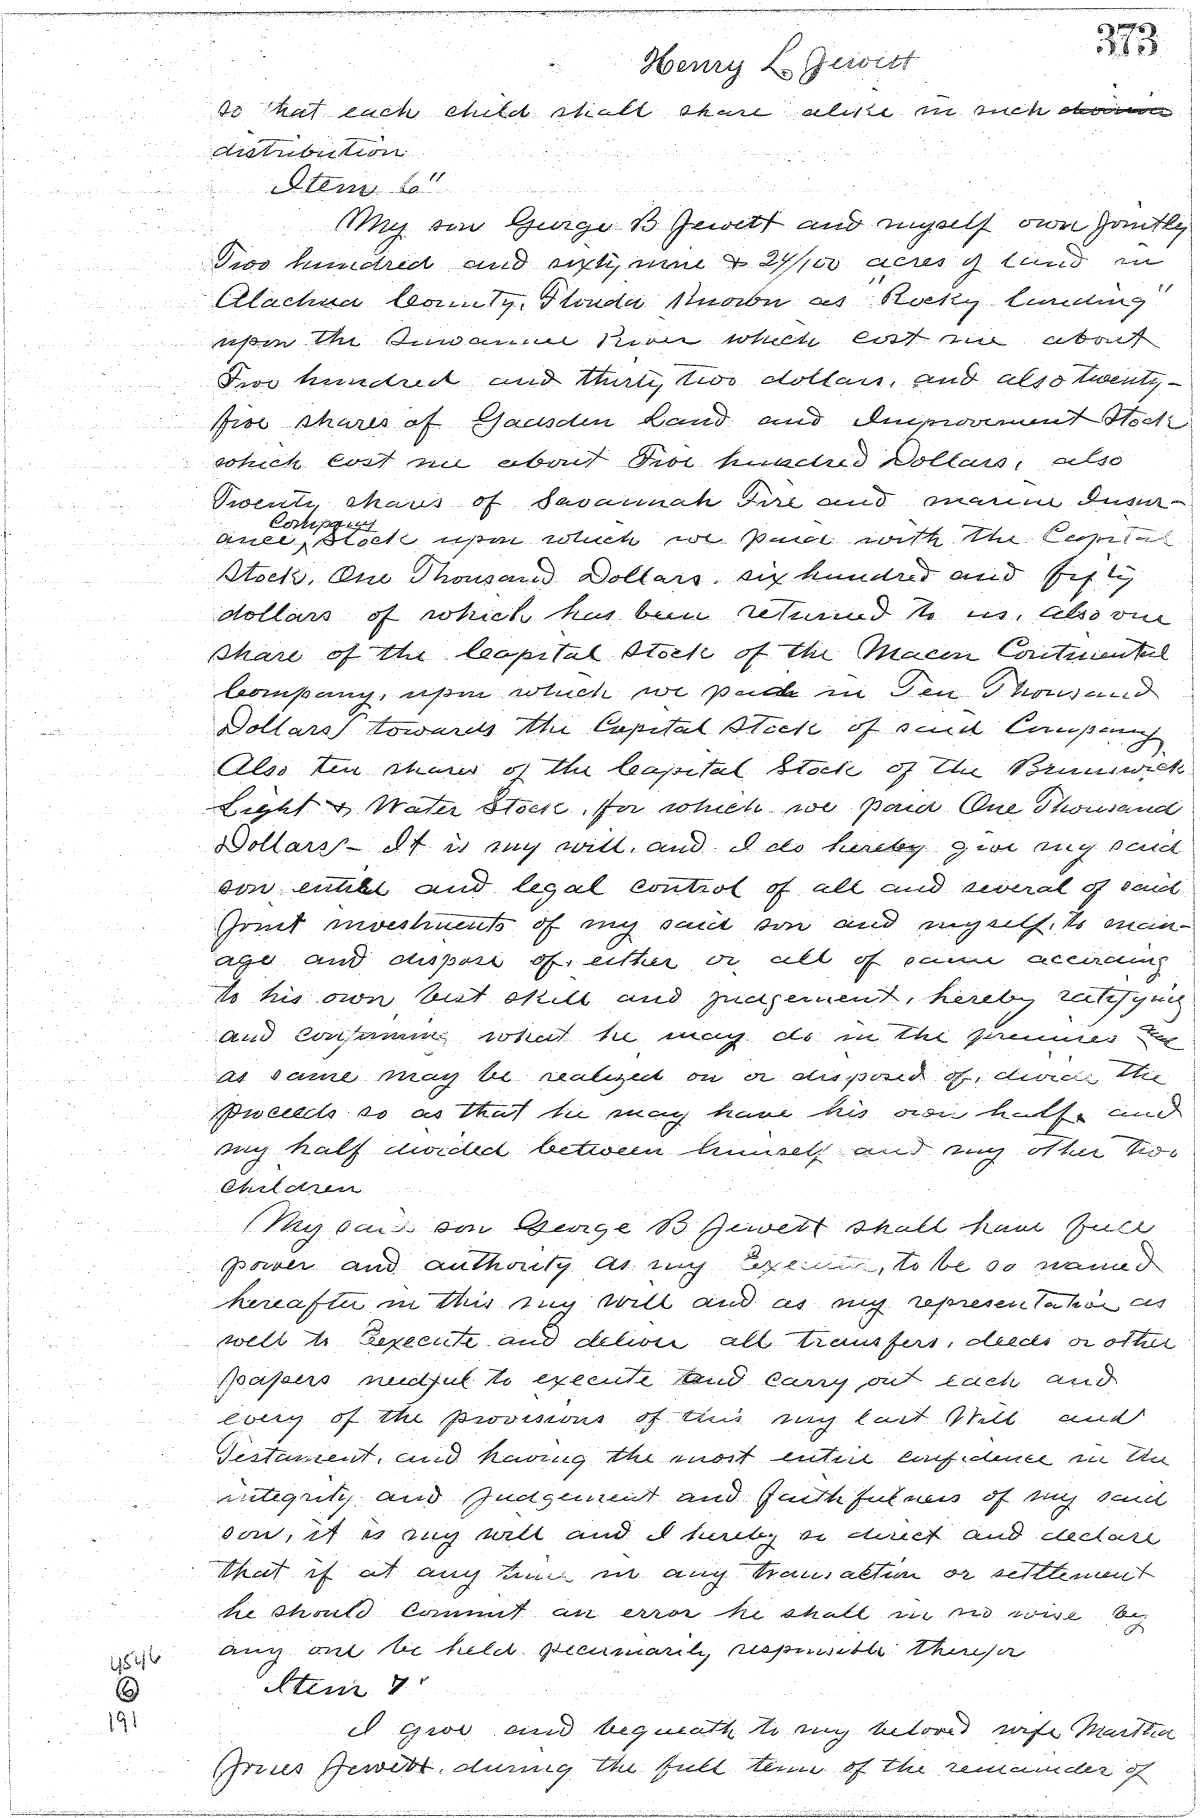 373
Henry L. Jewett
so that each child shall share alike in such division
distribution
Item 6"
My son George B Jewett and myself own jointly
Two hundred and sixty nine & 24/100 acres of land in
Alachua County, Florida known as "Rocky landing"
upon the Suwannee River which cost me about
Two hundred and thirty two dollars, and also twenty-
five shares of Gadsden Land and Improvement Stock
which cost me about Five hundred Dollars, also
Twenty shares of Savannah Fire and marine Insur-
Company
ance, Stock upon which we paid with the Capital
Stock, One Thousand Dollars, six hundred and fifty
dollars of which has been returned to us, also one
share of the Capital Stock of the Macon Continental
Company, upon which we paid in Ten Thousand
Dollars towards the Capital Stock of said Company
Also ten shares of the Capital Stock of the Brunswick
Light & Water Stock, for which we paid One Thousand
Dollars - It is my will, and I do hereby give my said
son entire and legal control of all and several of said
Joint investments of my said son and myself, to man-
age and dispose of, either or all of same according
to his own best skill and judgement, hereby ratifying
and confirming what he may do in the premises and
as same may be realized on or disposed of, divide the
proceeds so as that he may have his own half, and
my half divided between himself and my other two
children
My said son George B Jewett shall have full
power and authority as my Executor, to be so named
hereafter in this my will and as my representative as
well to Eexecute and deliver all transfers, deeds or other
papers needful to execute and carry out each and
every of the provisions of this my last Will and
Testament, and having the most entire confidence in the
integrity and judgement and faithfulness of my said
son, it is my will and I hereby so direct and declare
that if at any time in any transaction or settlement
he should commit an error he shall in no wise by
any one be held pecuniarily responsible therefor
4546
6
191
Item 7"
I give and bequeath to my beloved wife Martha
Jones Jewett, during the full term of the remainder of